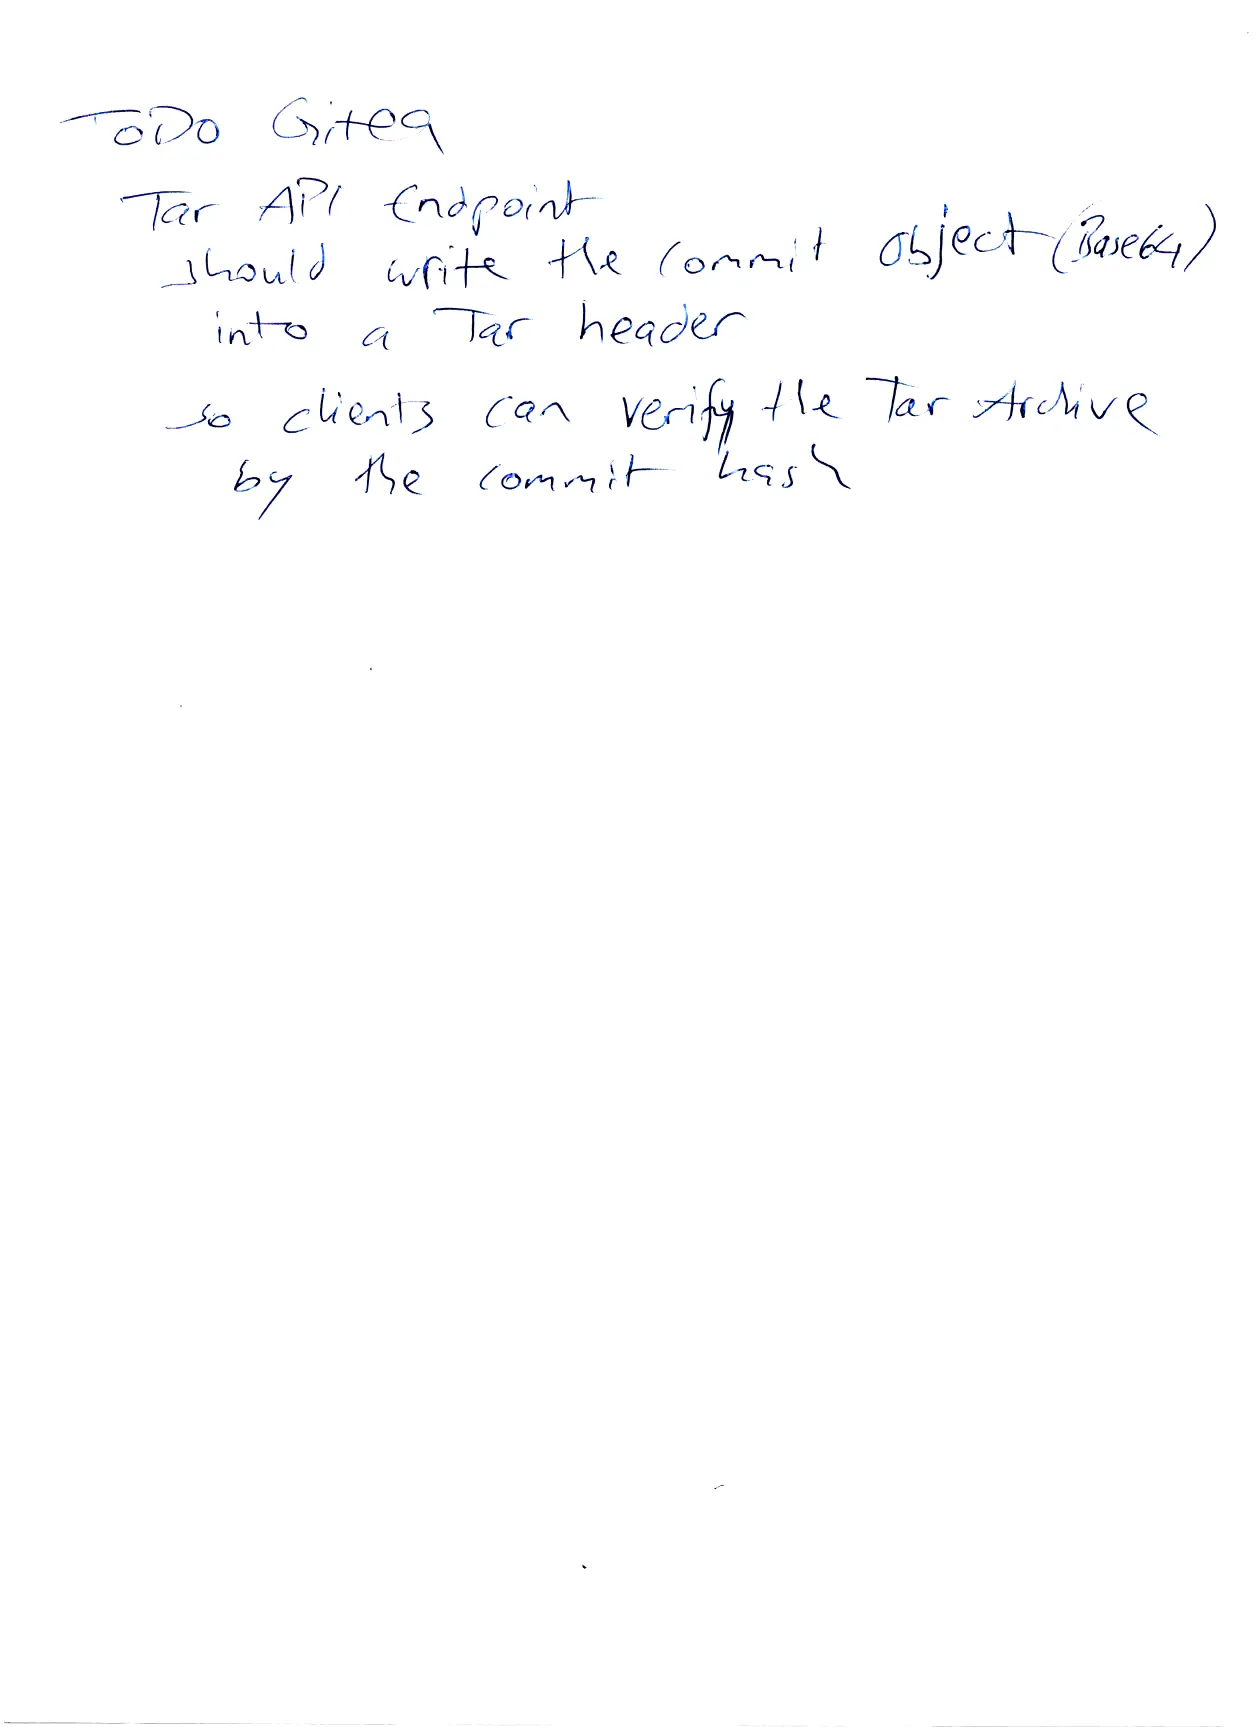 ToDo Gitea
Tar API Endpoint
should write the commit object (Base64)
into a Tar header
so clients can verify the Tar Archive
by the commit hash